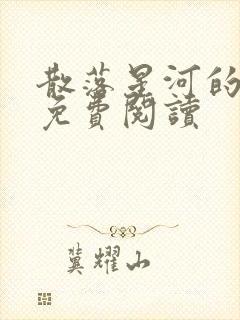 散落星河的
免費閱讀
冀耀山